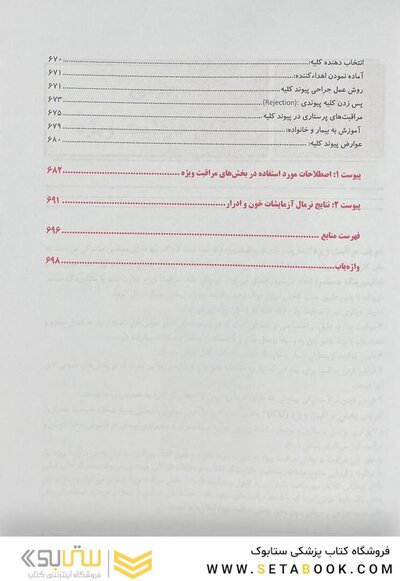 انتخاب دهنده کلیه: ۶۷۰
آماده نمودن اهداءکننده: ۶۷۱
روش عمل جراحی پیوند کلیه ۶۷۱
پس زدن کلیه پیوندی (Rejection): ۶۷۳
مراقبت‌های پرستاری در پیوند کلیه ۶۷۵
آموزش به بیمار و خانواده: ۶۷۹
عوارض پیوند کلیه: ۶۸۰
پیوست ۱: اصطلاحات مورد استفاده در بخش‌های مراقبت ویژه ۶۸۲
پیوست ۲: نتایج نرمال آزمایشات خون و ادرار ۶۹۱
فهرست منابع ۶۹۶
واژه‌یاب ۶۹۸
فروشگاه کتاب پزشکی ستابوک
WWW.SETABOOK.COM
ستابوک
فروشگاه اینترنتی کتاب